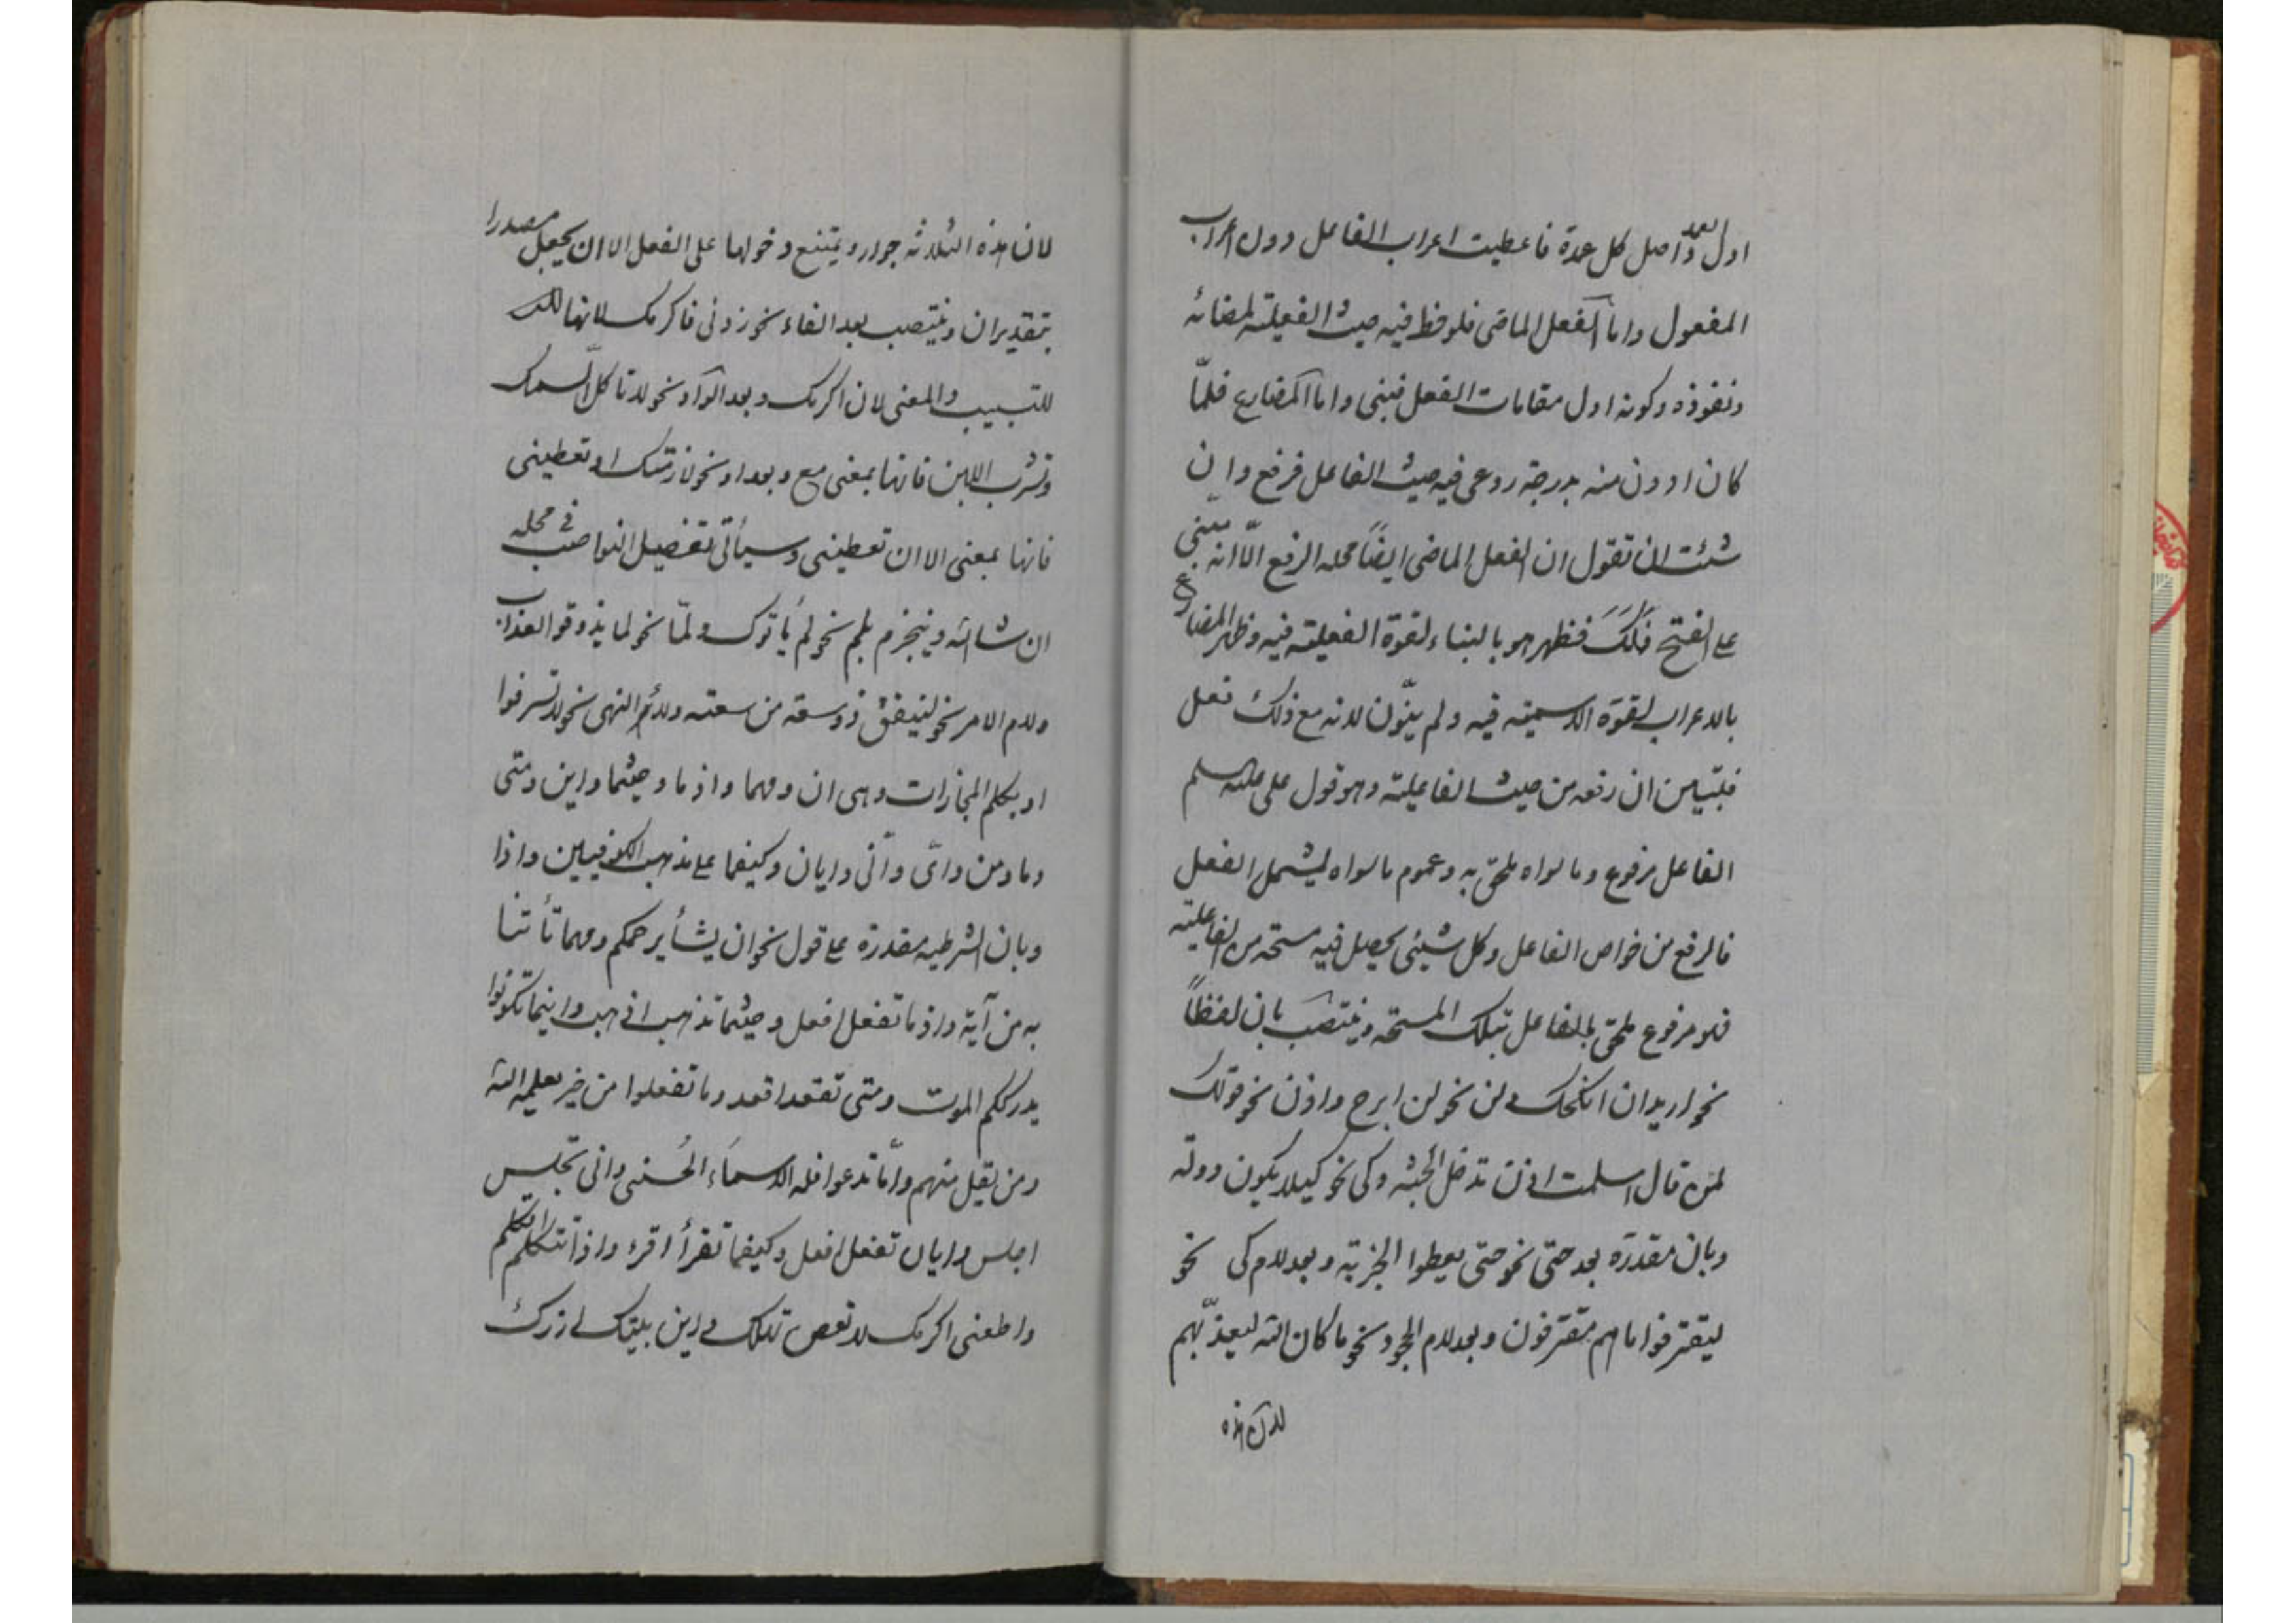 اول العمد و اصل كل عمدة فاعطيت اعراب الفاعل دون اعراب
المفعول واما الفعل الماضی فلوحظ فيه حيث الفعلية لمضائه
ونفوذه وكونه اول مقامات الفعل فبنی واما المضارع فلمّا
كان ادون منه بدرجة روعی فيه حيث الفاعل فرفع وان
شئت ان تقول ان الفعل الماضی ايضاً محله الرفع الّا انه مبنی
علی الفتح فلك فظهر هو بالبناء لقوة الفعلية فيه وظهر المضارع
بالاعراب لقوة الاسمية فيه ولم ينوّن لانه مع ذلك فعل
فتبين ان رفعه من حيث الفاعلية وهو قول علی عليه السلم
الفاعل مرفوع وما سواه ملحق به وعموم ما سواه ليشمل الفعل
فالرفع من خواص الفاعل وكل شیئ يحصل فيه مسحة من الفاعلية
فهو مرفوع ملحق بالفاعل بتلك المسحة وينتصب بان لفظاً
نحو اريد ان انكحك ولن نحو لن ابرح واذن نحو قولك
لمن قال اسلمت اذن تدخل الجنة وكی نحو كيلا يكون دولة
وبان مقدرة بعد حتی نحو حتی يعطوا الجزية وبعد لام كی نحو
ليقترفوا ما هم مقترفون وبعد لام الجحود نحو ما كان الله ليعذّبهم
لان هذه
لان هذه الثلاثة جوار ويمتنع دخولها علی الفعل الا ان يجعل مصدرا
بتقدير ان وينتصب بعد الفاء نحو زرنی فاكرمك لانها
للتسبيب والمعنی لان اكرمك وبعد الواو نحو لا تاكل السمك
وتشرب اللبن فانها بمعنی مع وبعد او نحو لازمنك او تعطينی
فانها بمعنی الا ان تعطينی وسيأتی تفصيل النواصب فی محله
ان شاء الله وينجزم بلم نحو لم يأتوك ولمّا نحو لما يذوقوا العذاب
ولام الامر نحو لينفق ذو سعة من سعته ولاء النهی نحو لا تسرفوا
او بكلم المجازات وهی ان ومهما واذما وحيثما واين ومتی
وما ومن وایّ وانّی وايان وكيفما علی مذهب الكوفيين واذا
وبان الشرطيه مقدرة علی قول نحو ان يشأ يرحمكم ومهما تأتنا
به من آية واذما تفعل افعل وحيثما تذهب اذهب واينما تكونوا
يدرككم الموت ومتی تقعد اقعد وما تفعلوا من خير يعلمه الله
ومن يقل منهم وايّاً ما تدعوا فله الاسماء الحُسنی وانی تجلس
اجلس وايان تفعل افعل وكيفما تقرأ اقرء واذا تتكلم اتكلم
واطعنی اكرمك لا تعص تهلك واين بيتك ازرك